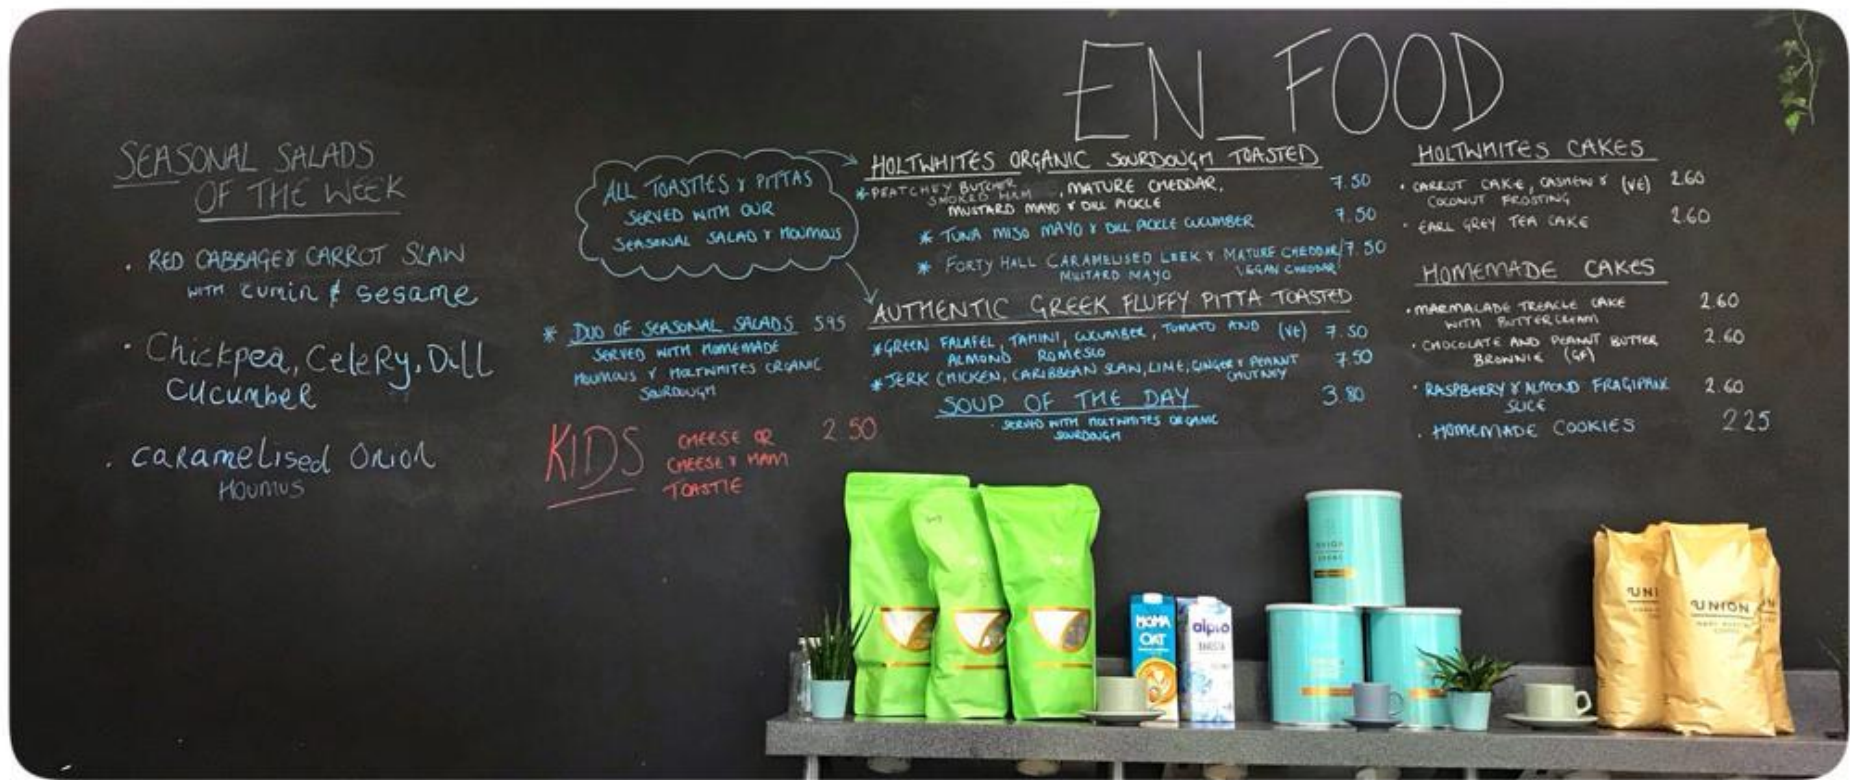 EN_FOOD
SEASONAL SALADS
OF THE WEEK
. RED CABBAGE & CARROT SLAW
WITH CUMIN & SESAME
. Chickpea, CELERY, Dill
CUCUMBER
. CARAMELISED ONION
HOUMUS
ALL TOASTIES & PITTAS
SERVED WITH OUR
SEASONAL SALAD & HOUMOUS
* DUO OF SEASONAL SALADS 5.95
SERVED WITH HOMEMADE
HOUMOUS & HOLTWHITES ORGANIC
SOURDOUGH
KIDS
CHEESE OR 2.50
CHEESE & HAM
TOASTIE
HOLTWHITES ORGANIC SOURDOUGH TOASTED
* PEATCHEY BUTCHER SMOKED HAM, MATURE CHEDDAR, 7.50
MUSTARD MAYO & DILL PICKLE
* TUNA MISO MAYO & DILL PICKLE CUCUMBER 7.50
* FORTY HALL CARAMELISED LEEK & MATURE CHEDDAR/ 7.50
MUSTARD MAYO VEGAN CHEDDAR
AUTHENTIC GREEK FLUFFY PITTA TOASTED
* GREEN FALAFEL, TAHINI, CUCUMBER, TOMATO AND (VE) 7.50
ALMOND ROMESCO
* JERK CHICKEN, CARIBBEAN SLAW, LIME, GINGER & PEANUT 7.50
CHUTNEY
SOUP OF THE DAY 3.80
. SERVED WITH HOLTWHITES ORGANIC
SOURDOUGH
HOLTWHITES CAKES
. CARROT CAKE, CASHEW & (VE) 2.60
COCONUT FROSTING
. EARL GREY TEA CAKE 2.60
HOMEMADE CAKES
. MARMALADE TREACLE CAKE 2.60
WITH BUTTERCREAM
. CHOCOLATE AND PEANUT BUTTER 2.60
BROWNIE (GF)
. RASPBERRY & ALMOND FRAGIPANE 2.60
SLICE
. HOMEMADE COOKIES 2.25
MOMA
OAT
alpro
UNI
UNION